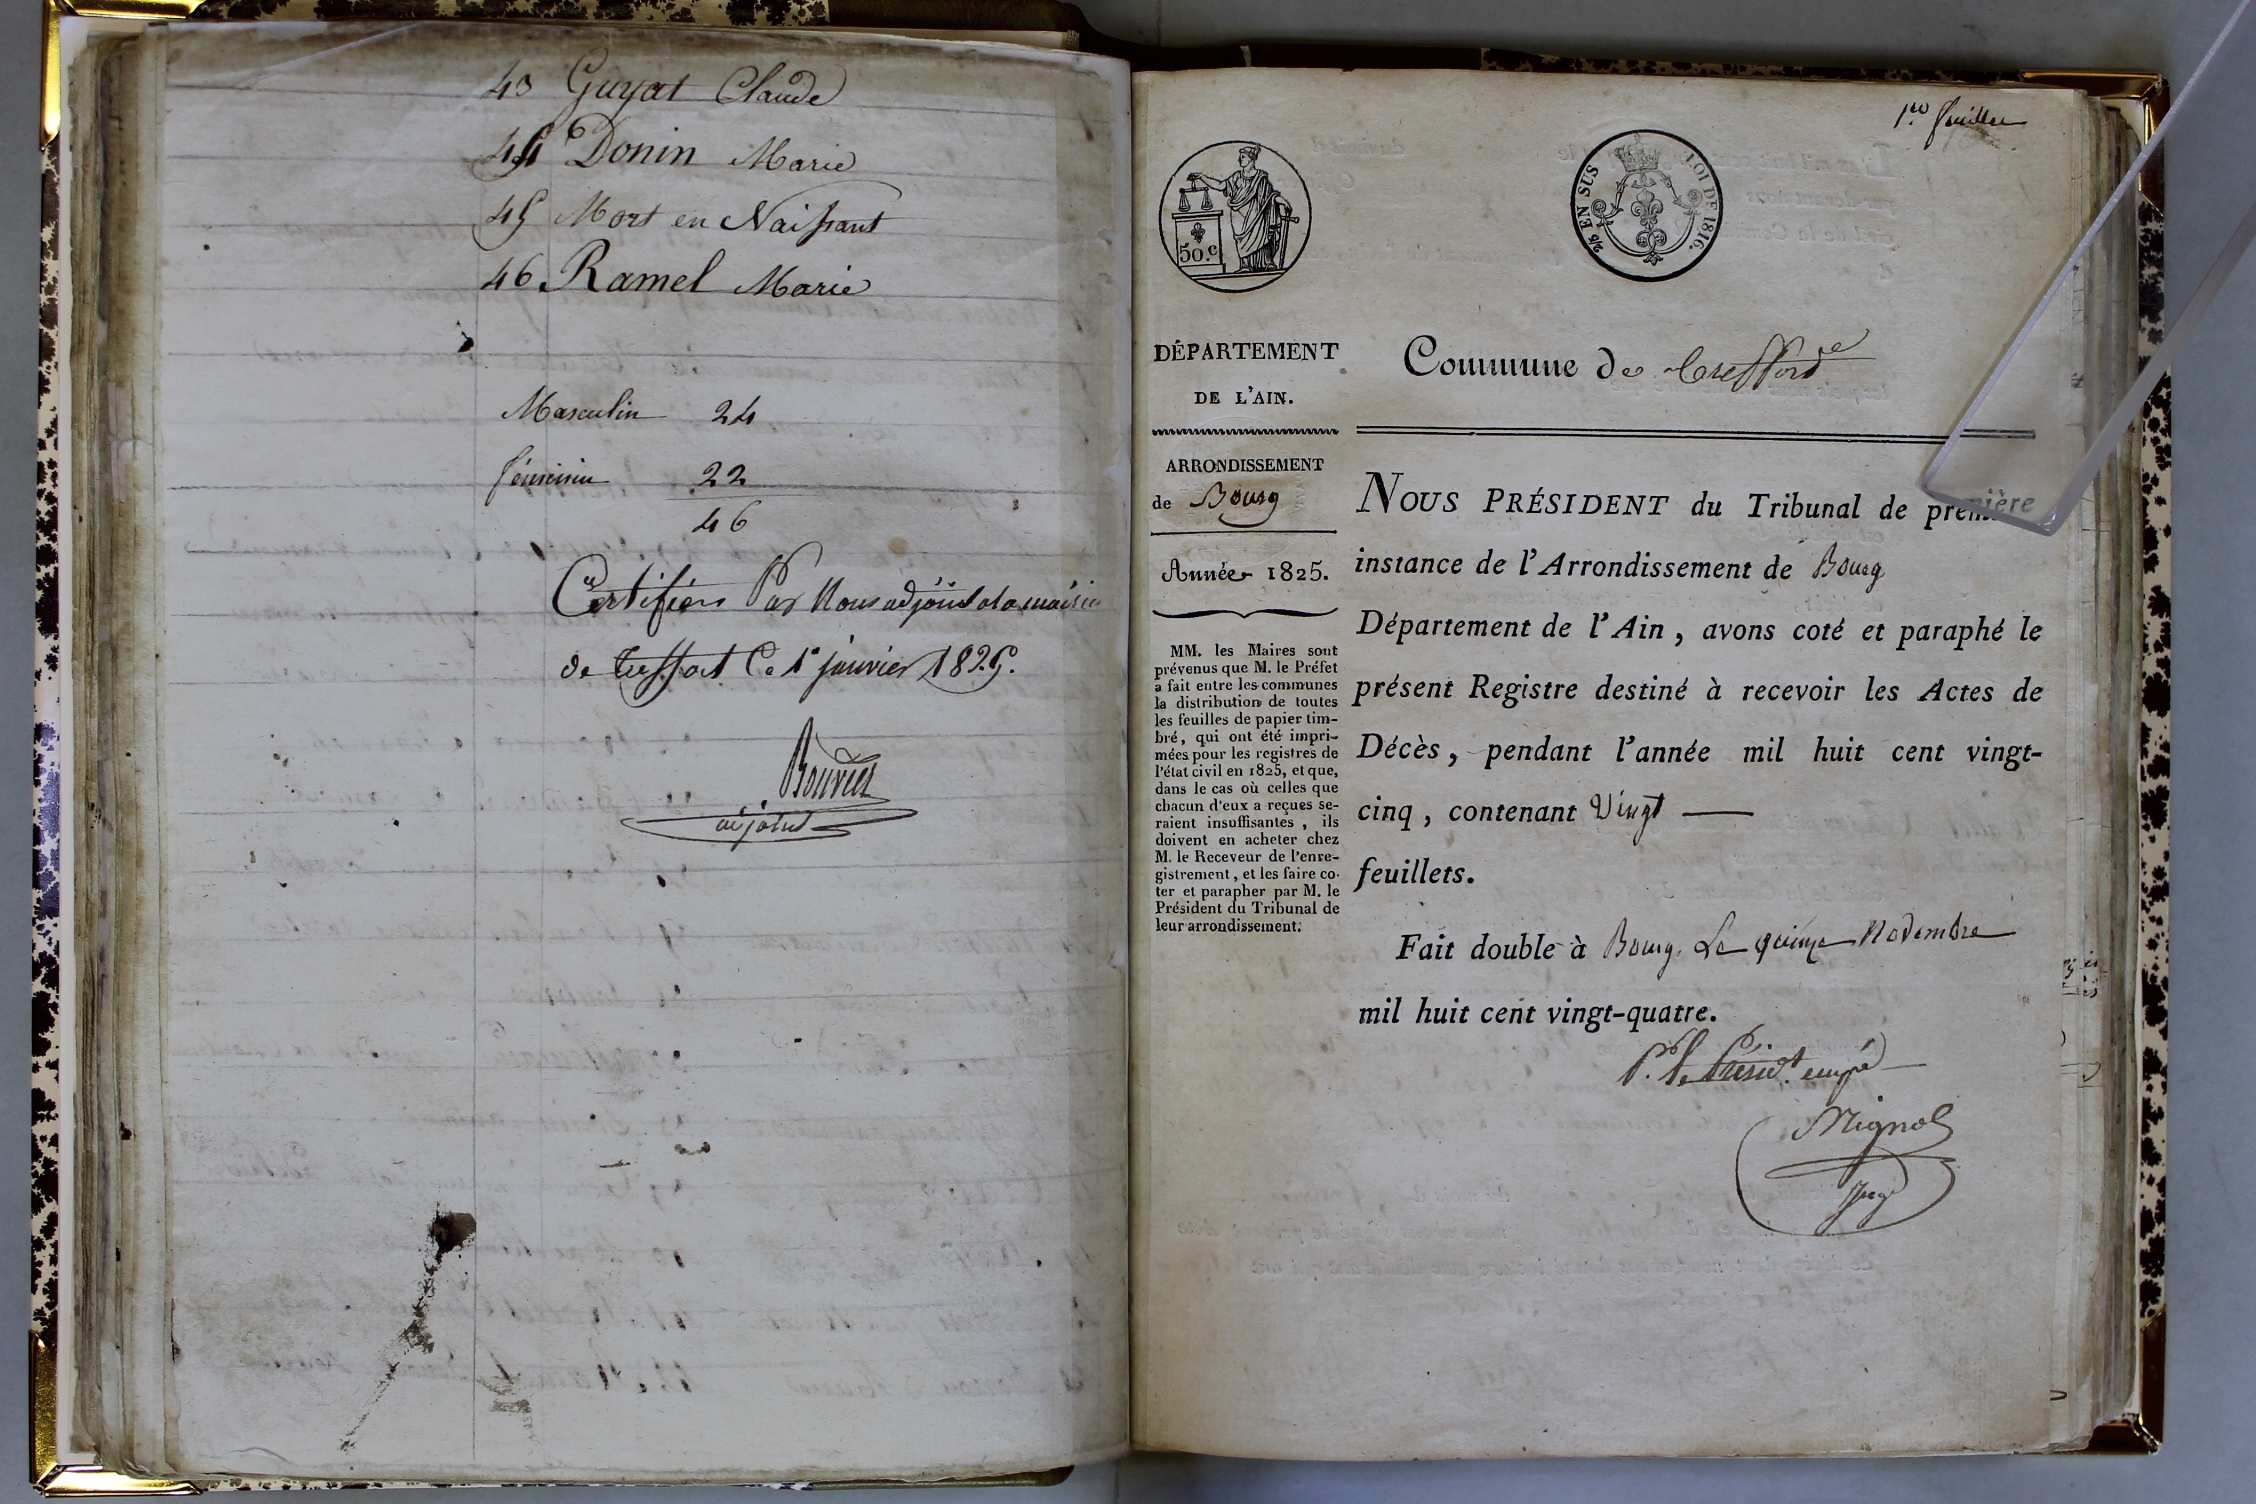 43 Guyat Claude
44 Donin Marie
45 Mort en Naissant
46 Ramel Marie
Masculin 24
féminin 22
46
Certifiéns Par Nous adjoint a la mairie
de Treffort Ce 1er janvier 1825.
Bouvier
adjoint
1er feuillet
50.c
2/5 EN SUS
LOI DE 1816.
DÉPARTEMENT
DE L'AIN.
ARRONDISSEMENT
de Bourg
Année 1825.
MM. les Maires sont
prévenus que M. le Préfet
a fait entre les communes
la distribution de toutes
les feuilles de papier tim-
bré, qui ont été impri-
mées pour les registres de
l'état civil en 1825, et que,
dans le cas où celles que
chacun d'eux a reçues se-
raient insuffisantes, ils
doivent en acheter chez
M. le Receveur de l'enre-
gistrement, et les faire co-
ter et parapher par M. le
Président du Tribunal de
leur arrondissement.
Commune de Treffort
NOUS PRÉSIDENT du Tribunal de première
instance de l'Arrondissement de Bourg
Département de l'Ain, avons coté et paraphé le
présent Registre destiné à recevoir les Actes de
Décès, pendant l'année mil huit cent vingt-
cinq, contenant Vingt
feuillets.
Fait double à Bourg, Le quinze Novembre
mil huit cent vingt-quatre.
P. le Présidt. empé
Mignol
Juge